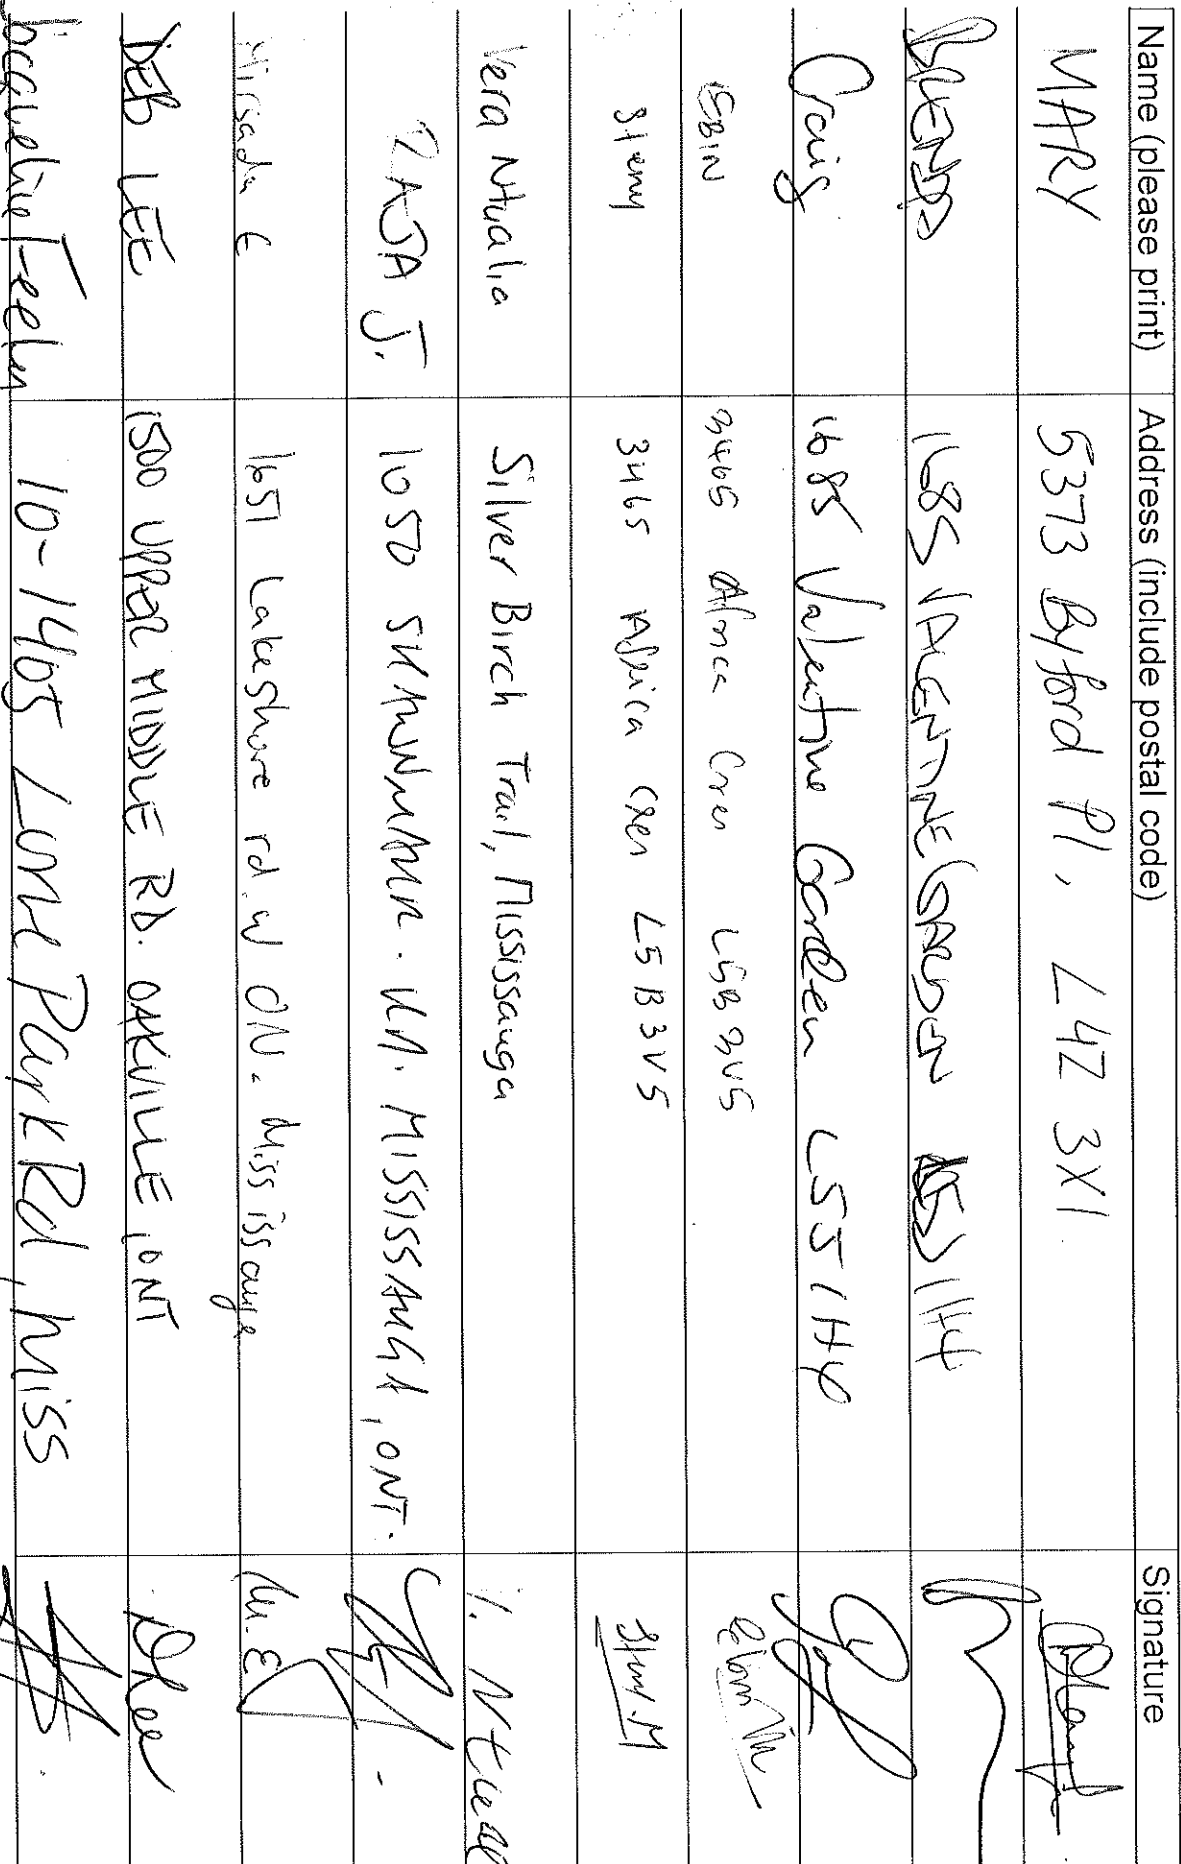 Name (please print) Address (include postal code) Signature
MARY 5373 Byford Pl, L4Z 3X1.
BRENDA 1685 VALENTINE GARDEN 1H4
Craig 1685 Valentine Garden L5J 1H4
EBIN 3465 Africa Cres L5B 3V5
3465 Africa Cres L5B 3V5
Vera Ntualia Silver Birch Trail, Mississauga
ZAJA J. 1050 MISSISSAUGA, ONT.
Mirsada E 1651 Lakeshore rd. W ON. Missisauga M.E
DEB LEE 1500 UPPER MIDDLE RD. OAKVILLE, ONT DLee
Jacqueline Feeley 10-1465 Lorne Park Rd, Miss